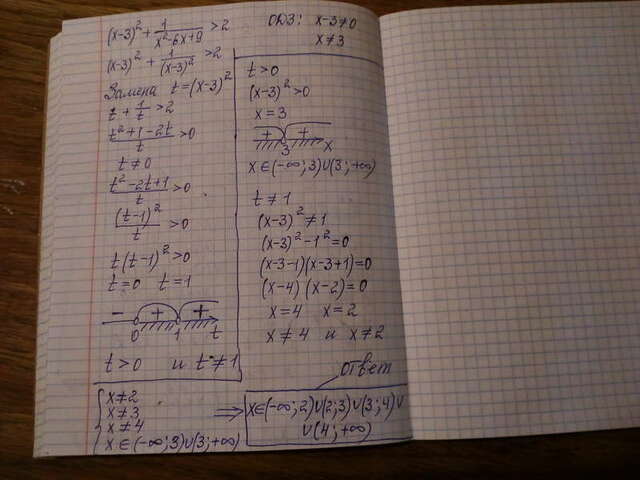 (x-3)² + 1/(x²-6x+9) > 2
(x-3)² + 1/(x-3)² > 2
Замена t=(x-3)²
t + 1/t > 2
(t²+1-2t)/t > 0
t≠0
(t²-2t+1)/t > 0
(t-1)²/t > 0
t(t-1)² > 0
t=0 t=1
- + +
0 1 t
t>0 и t≠1
ОДЗ: x-3≠0
x≠3
t>0
(x-3)²>0
x=3
+ +
3 x
x∈(-∞;3)∪(3;+∞)
t≠1
(x-3)²≠1
(x-3)²-1²=0
(x-3-1)(x-3+1)=0
(x-4)(x-2)=0
x=4 x=2
x≠4 и x≠2
ответ
{ x≠2
x≠3
x≠4
x∈(-∞;3)∪(3;+∞)
⇒ x∈(-∞;2)∪(2;3)∪(3;4)∪
∪(4;+∞)